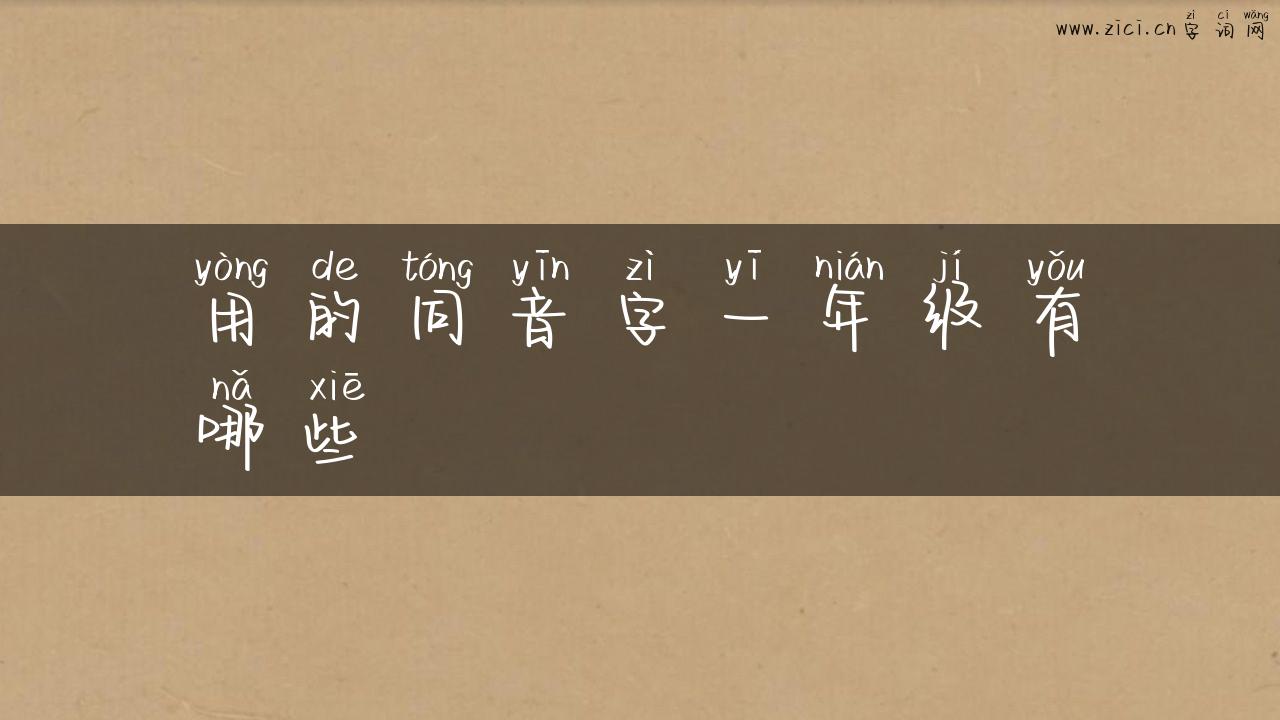 zì cí wǎng
www.zici.cn 字 词 网
yòng de tóng yīn zì yī nián jí yǒu
用 的 同 音 字 一 年 级 有
nǎ xiē
哪 些